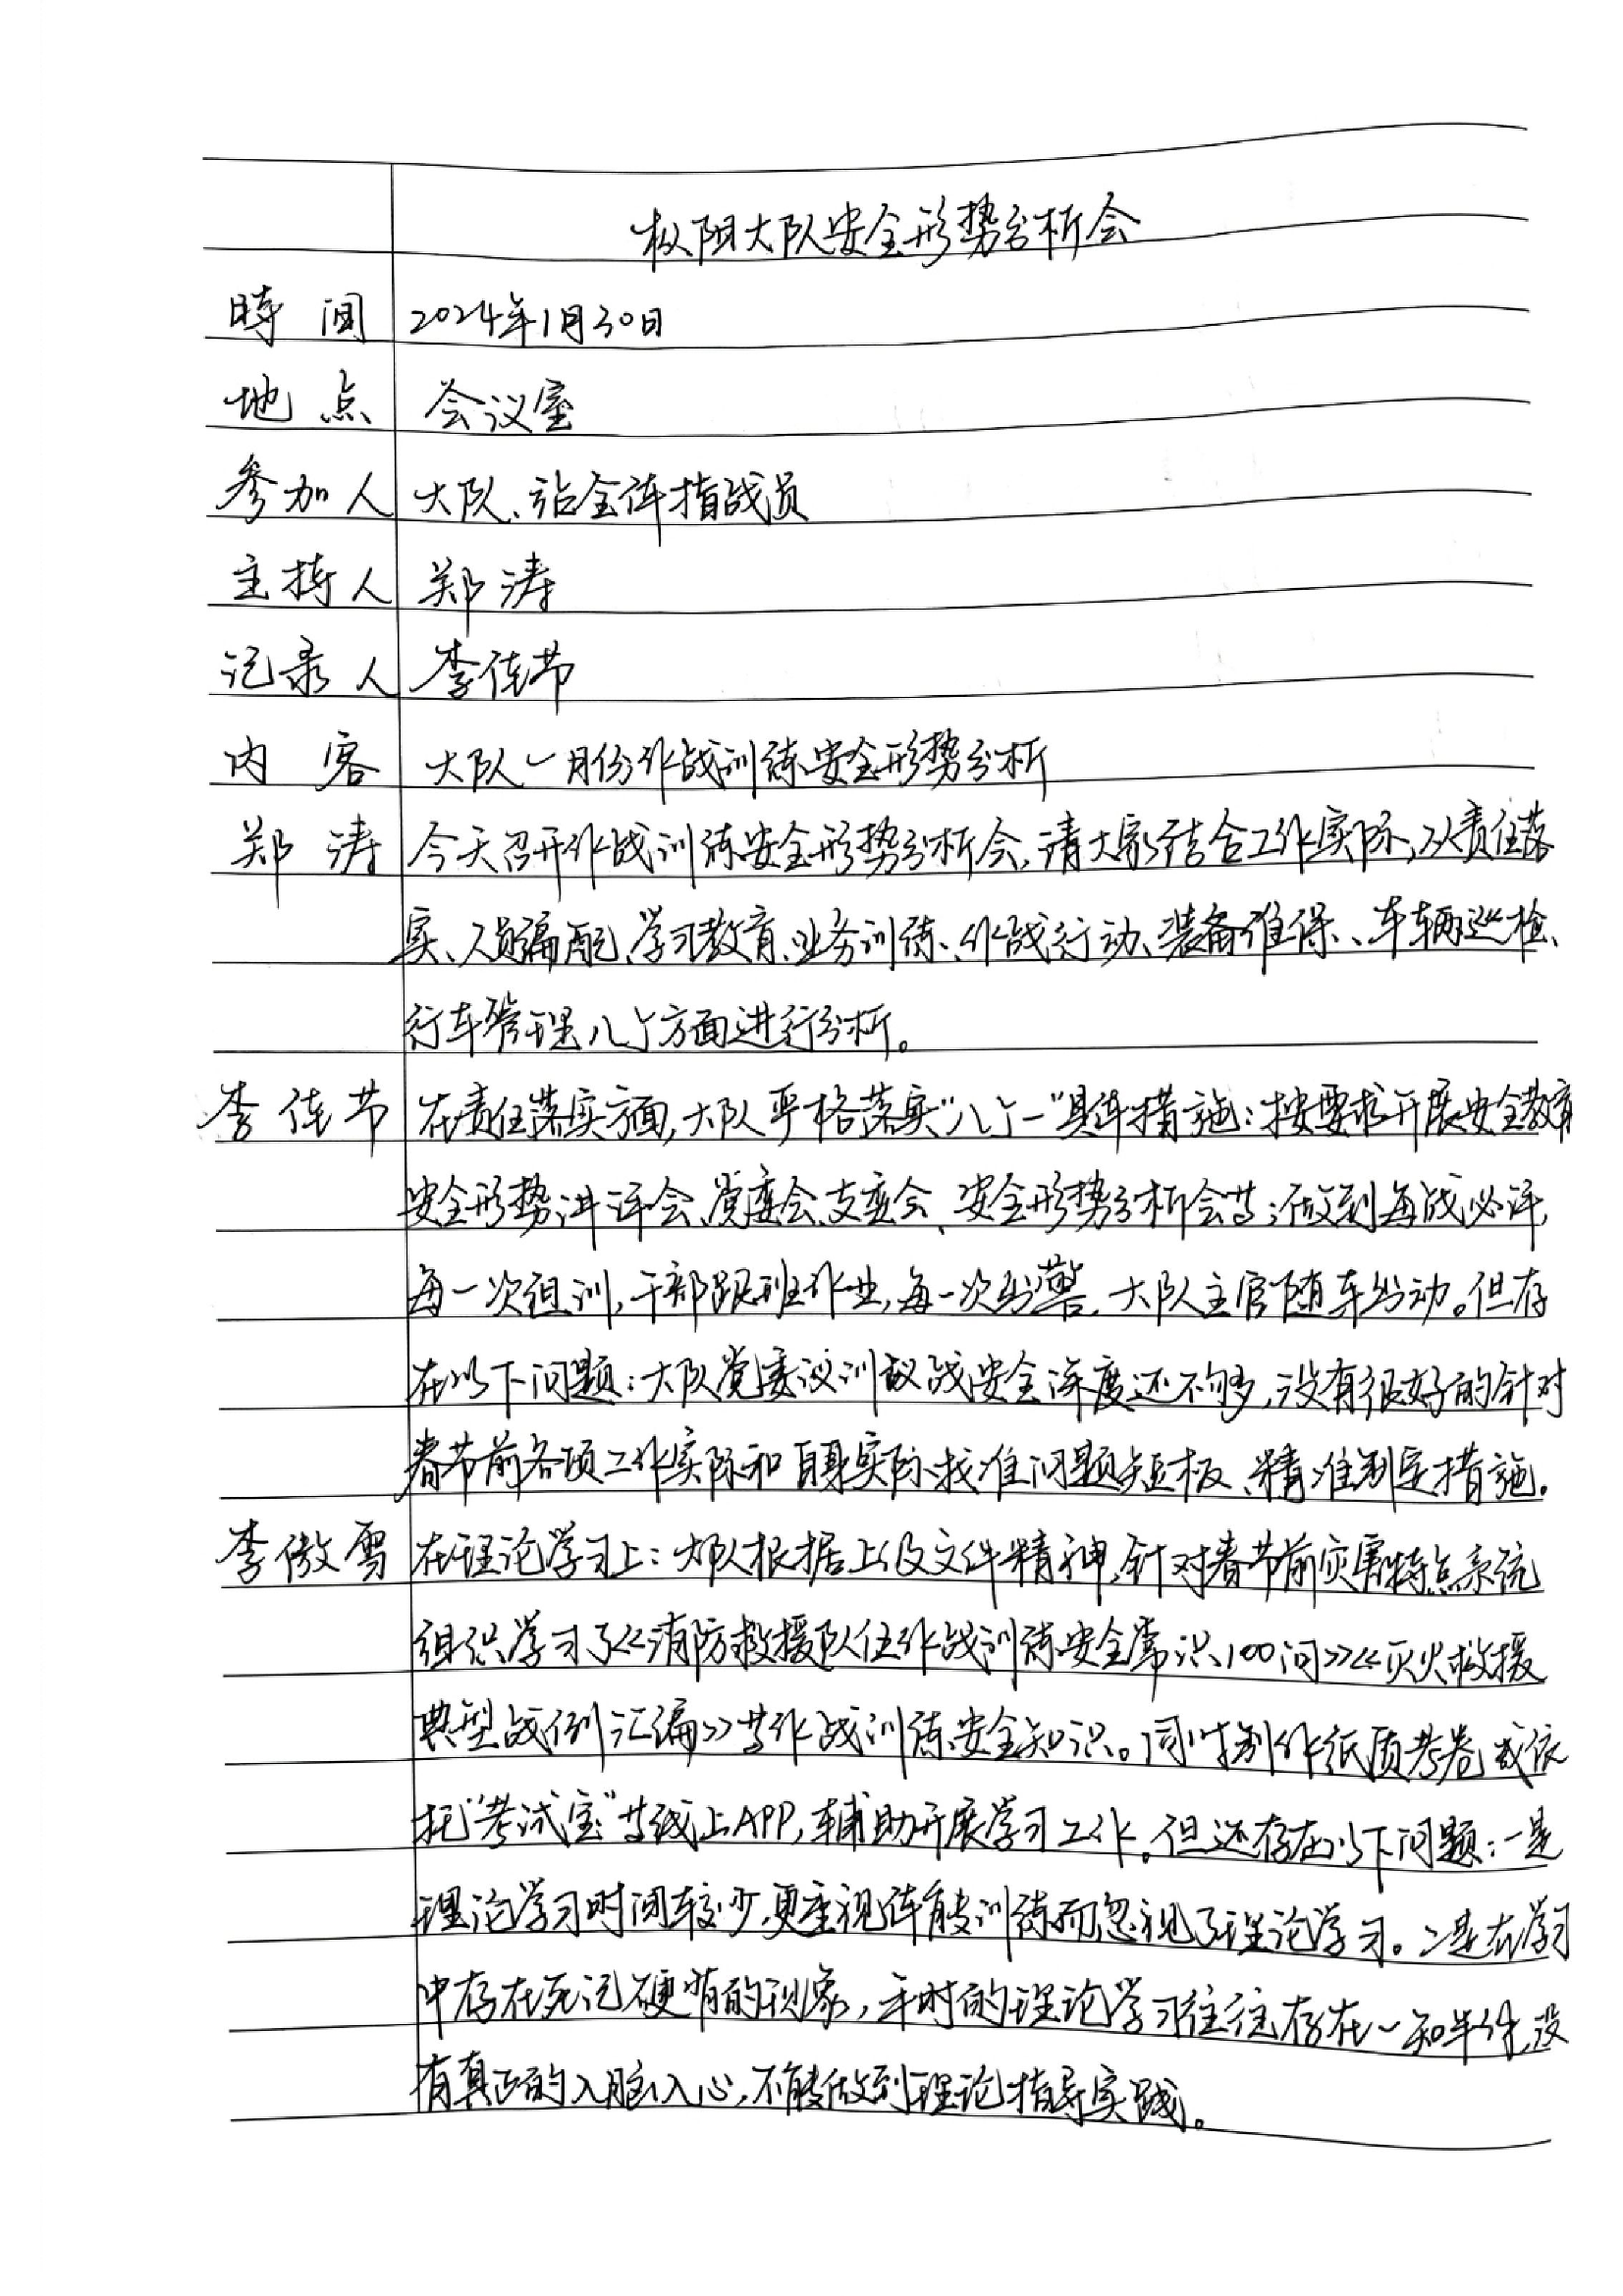 枞阳大队安全形势分析会
時间 2024年1月30日
地点 会议室
参加人 大队、站全体指战员
主持人 郑涛
记录人 李佳节
内容 大队一月份作战训练安全形势分析
郑涛 今天召开作战训练安全形势分析会,请大家结合工作实际,从责任落
实、人员编配、学习教育、业务训练、作战行动、装备维保、车辆巡检、
行车管理几个方面进行分析。
李佳节 在责任落实方面,大队严格落实“八个一”具体措施:按要求开展安全教育
安全形势讲评会、党委会、支委会、安全形势分析会等;做到每战必评,
每一次组训,干部跟班作业,每一次出警,大队主官随车出动。但存
在以下问题:大队党委议训议战安全深度还不够,没有很好的针对
春节前各项工作实际和自身实际、找准问题短板、精准制定措施。
李傲雪 在理论学习上:大队根据上级文件精神,针对春节前灾害特点系统
组织学习了《消防救援队伍作战训练安全常识100问》《灭火救援
典型战例汇编》等作战训练安全知识。同时制作纸质考卷或依
托“考试宝”等线上APP,辅助开展学习工作。但还存在以下问题:一是
理论学习时间较少,更重视体能训练而忽视了理论学习。二是在学习
中存在死记硬背的现象,平时的理论学习往往存在一知半解,没
有真正的入脑入心,不能做到理论指导实践。